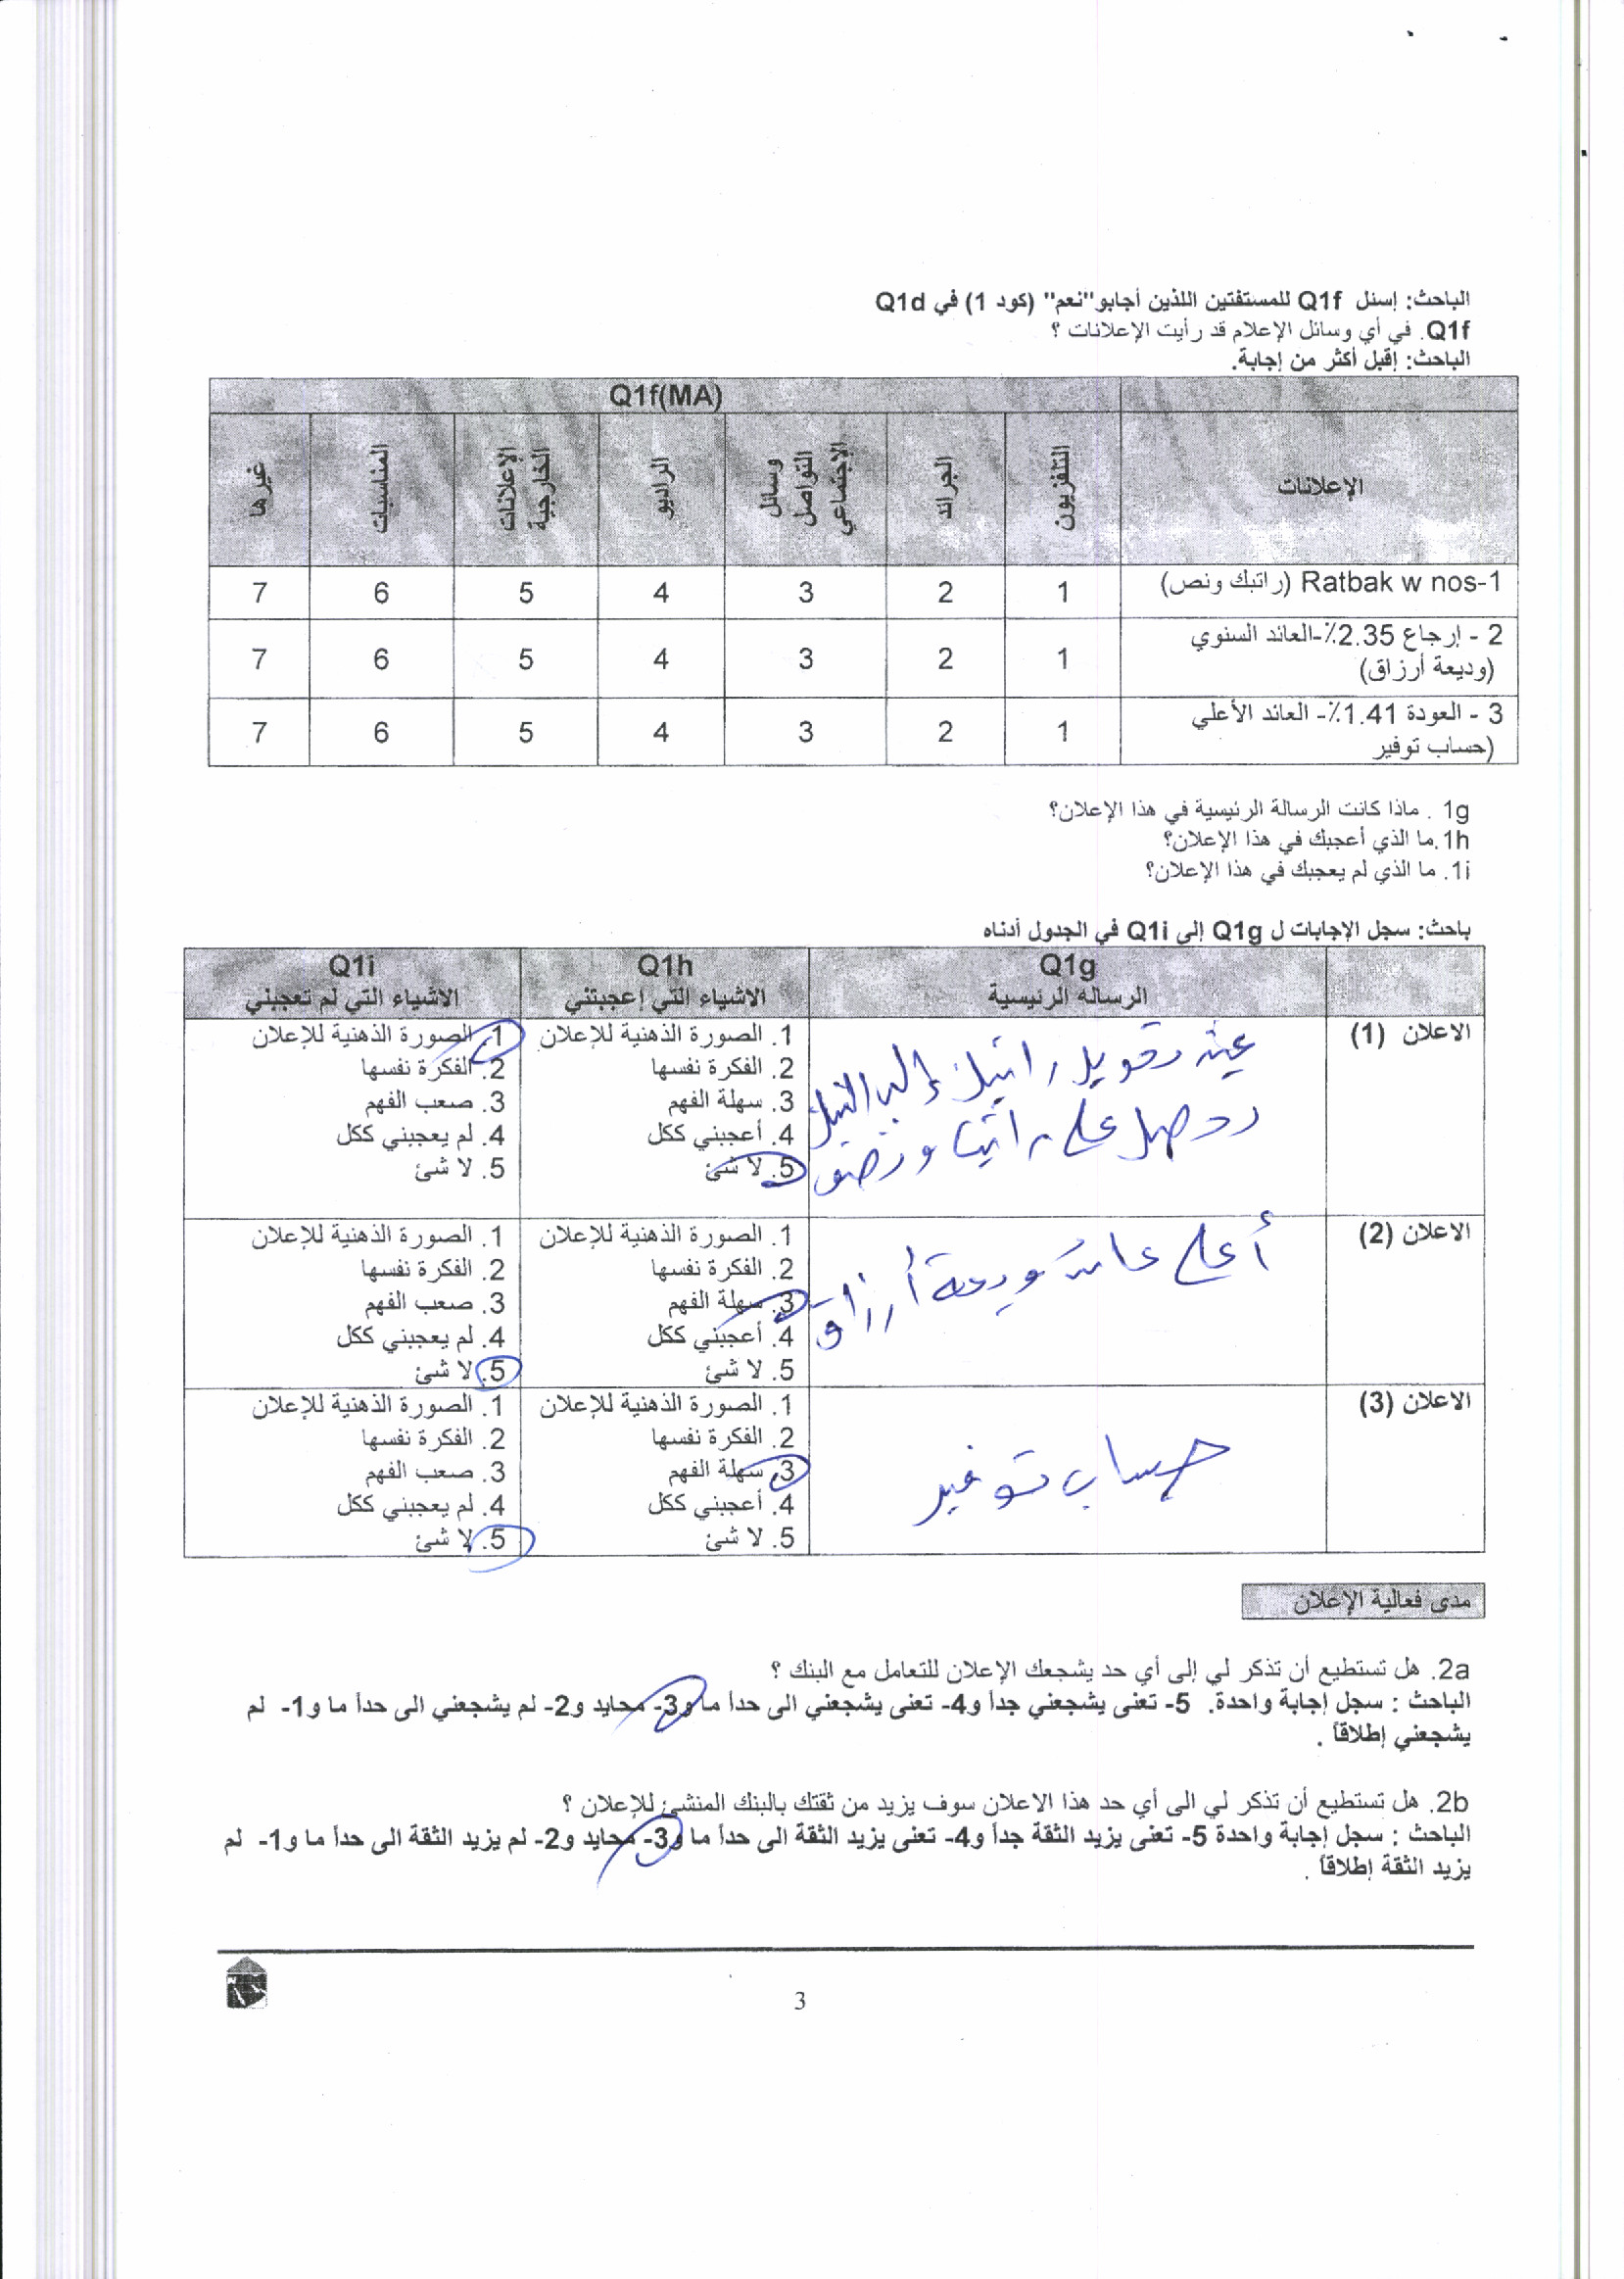 الباحث: إسئل Q1f للمستفتين اللذين أجابو"نعم" (كود 1) في Q1d
Q1f. في أي وسائل الإعلام قد رأيت الإعلانات ؟
الباحث: إقبل أكثر من إجابة.
Q1f(MA)
الإعلانات التلفزيون الجرائد وسائل التواصل الإجتماعي الراديو الإعلانات الخارجية المناسبات غيرها
1-Ratbak w nos (راتبك ونص) 1 2 3 4 5 6 7
2 - إرجاع 2.35٪-العائد السنوي
(وديعة أرزاق) 1 2 3 4 5 6 7
3 - العودة 1.41٪- العائد الأعلي
(حساب توفير 1 2 3 4 5 6 7
1g . ماذا كانت الرسالة الرئيسية في هذا الإعلان؟
1h.ما الذي أعجبك في هذا الإعلان؟
1i. ما الذي لم يعجبك في هذا الإعلان؟
باحث: سجل الإجابات ل Q1g إلى Q1i في الجدول أدناه
Q1g Q1h Q1i
الرساله الرئيسية الاشياء التي إعجبتني الاشياء التي لم تعجبني
الاعلان (1)
عند تحويل راتبك إلى البنك
تحصل على راتب ونصف
1. الصورة الذهنية للإعلان
2. الفكرة نفسها
3. سهلة الفهم
4. أعجبني ككل
5. لا شئ
1. الصورة الذهنية للإعلان
2. الفكرة نفسها
3. صعب الفهم
4. لم يعجبني ككل
5. لا شئ
الاعلان (2)
أعلى عائد وديعة أرزاق
1. الصورة الذهنية للإعلان
2. الفكرة نفسها
3. سهلة الفهم
4. أعجبني ككل
5. لا شئ
1. الصورة الذهنية للإعلان
2. الفكرة نفسها
3. صعب الفهم
4. لم يعجبني ككل
5. لا شئ
الاعلان (3)
حساب توفير
1. الصورة الذهنية للإعلان
2. الفكرة نفسها
3. سهلة الفهم
4. أعجبني ككل
5. لا شئ
1. الصورة الذهنية للإعلان
2. الفكرة نفسها
3. صعب الفهم
4. لم يعجبني ككل
5. لا شئ
مدى فعالية الإعلان
2a. هل تستطيع أن تذكر لي إلى أي حد يشجعك الإعلان للتعامل مع البنك ؟
الباحث : سجل إجابة واحدة. 5- تعنى يشجعني جداً و4- تعنى يشجعني الى حداً ما و3- محايد و2- لم يشجعني الى حداً ما و1- لم
يشجعني إطلاقاً .
2b. هل تستطيع أن تذكر لي الى أي حد هذا الاعلان سوف يزيد من ثقتك بالبنك المنشئ للإعلان ؟
الباحث : سجل إجابة واحدة 5- تعنى يزيد الثقة جداً و4- تعنى يزيد الثقة الى حداً ما و3- محايد و2- لم يزيد الثقة الى حداً ما و1- لم
يزيد الثقة إطلاقاً .
3